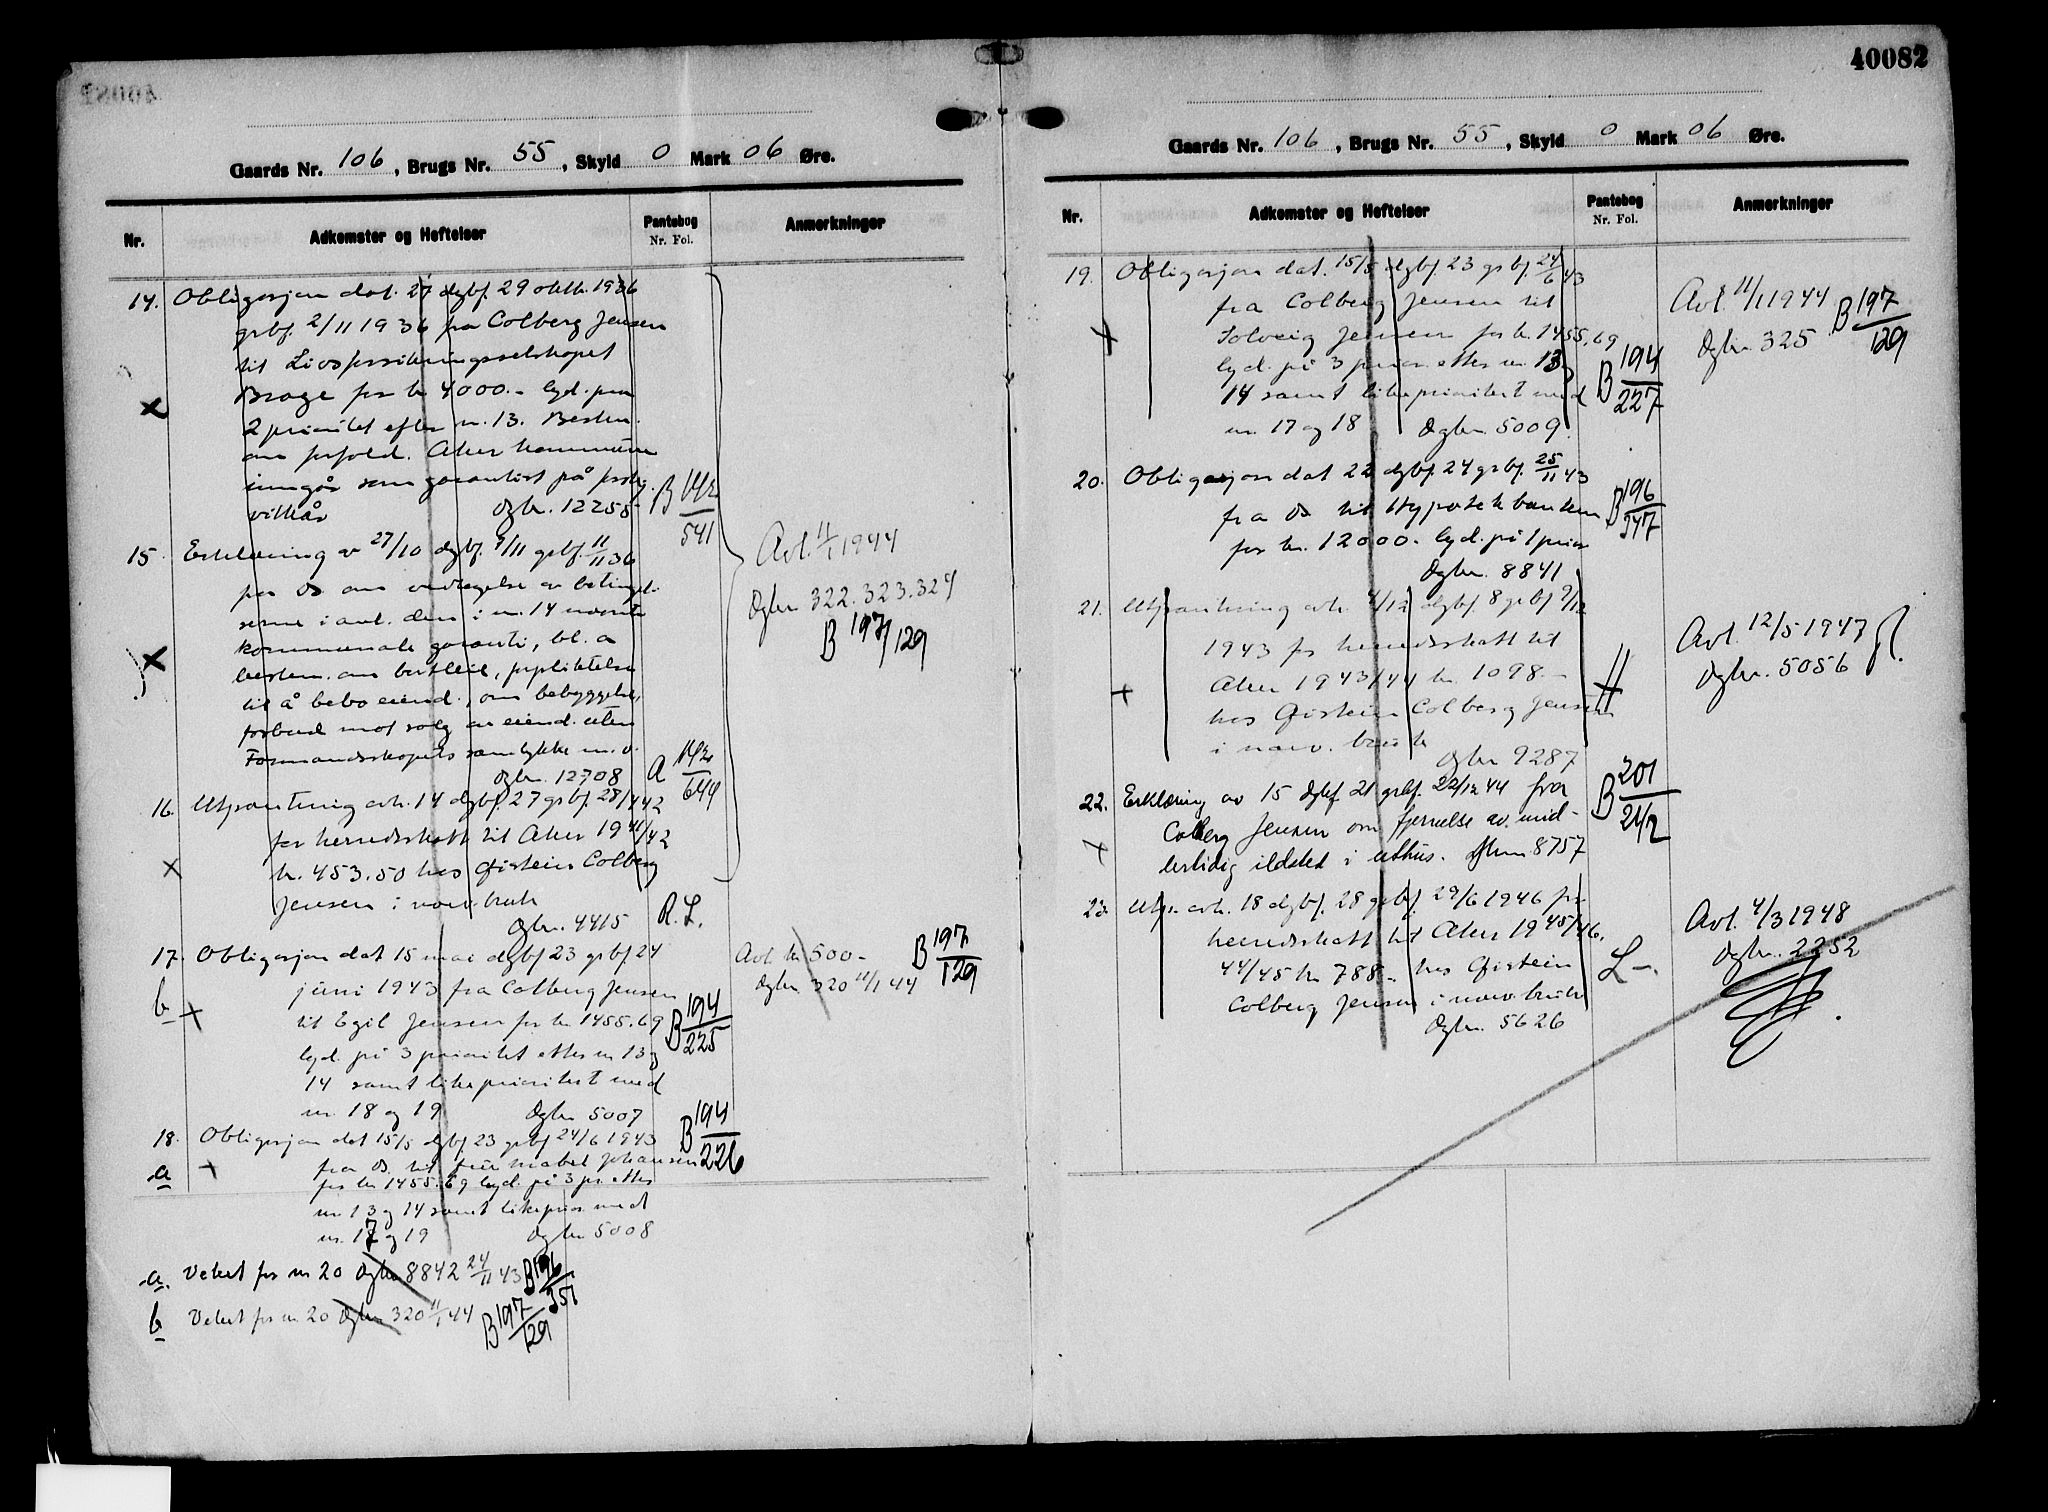 40082
Gaards Nr. 106, Brugs Nr. 55, Skyld 0 Mark 06 Øre.
Nr. Adkomster og Heftelser Pantebog Nr. Fol. Anmerkninger
14. Obligasjon dat. 27 dgbf. 29 oktb. 1936
grbf. 2/11 1936 fra Colberg Jensen
til Livsforsikringsselskapet
Brage for kr 4000.- lyd. på
2 prioritet efter nr. 13. Bestem.
om forfald. Aker kommune
inngår som garantist på
vilkår Dgbn. 12255 B 142/541
15. Erklæring av 27/10 dgbf. 9/11 grbf. 11/11 36
fra ds om vedtagelse av betingel-
serne i anl. den i nr. 14 nevnte
kommunale garanti, bl. a
bestem. om bortleie, forpliktelse
til å bebo eiend., om bebyggelse,
forbud mot salg av eiend. uten
Formandsskapets samtykke m.v.
Dgbn. 12708 A 142/644
16. Utpantning avh. 14 dgbf. 27 grbf. 28/4 42
for herredsskatt til Aker 1941/42
kr. 453.50 hos Øistein Colberg
Jensen i nærv. bruk
Dgbn. 4415 R.L.
Avl. 11/1 1944
Dgbn 322.323.324
B 197/129
17. Obligasjon dat 15 mai dgbf 23 grbf 24
juni 1943 fra Colberg Jensen
til Egil Jensen for kr 1455.69
lyd. på 3 prioritet etter nr 13 og
14 samt likeprioritert med
nr. 18 og 19 Dgbn 5007
B 194/225
Avl. kr 500- B 197/129
Dgbn 320 11/1 44
b
18. Obligasjon dat 15/5 dgbf 23 grbf 24/6 1943
fra ds. til fru Mabel Johansen
for kr 1455.69 lyd. på 3 pr. etter
nr 13 og 14 samt likeprior med
nr. 17 og 19 Dgbn 5008
B 194/226
a
a. Veket for nr 20 Dgbn 8842 24/11 43 B 196/351
b Veket for nr 20 Dgbn 320 11/1 44 B 197/129
Gaards Nr. 106, Brugs Nr. 55, Skyld 0 Mark 06 Øre.
Nr. Adkomster og Heftelser Pantebog Nr. Fol. Anmerkninger
19. Obligasjon dat. 15/5 dgbf 23 grbf. 24/6 43
fra Colberg Jensen til
Solveig Jensen for kr. 1455.69
lyd. på 3 prior. etter nr. 13 og
14 samt likeprioritert med
nr. 17 og 18 Dgbn 5009.
B 194/227
Avl. 11/1 1944 B 197/129
Dgbn 325
20. Obligasjon dat 22 dgbf. 24 grbf. 25/11 43
fra ds til Hypotekbanken
for kr. 12000.- lyd. på 1 prior
Dgbn. 8841
B 196/347
21. Utpantning avh. 4/12 dgbf 8 grbf 9/12
1943 for herredsskatt til
Aker 1943/44 kr. 1098.-
hos Øistein Colberg Jensen
i nærv. bruk
Dgbn 9287
Avl. 12/5 1947
Dgbn. 5056
22. Erklæring av 15 dgbf 21 grbf. 22/12 44 fra
Colberg Jensen om fjernelse av mid-
lertidig ildsted i uthus. Dgbn 8757
B 201/212
23. Utp. avh. 18 dgbf. 28 grbf. 29/6 1946 for
herredsskatt til Aker 1945/46.
44/45 kr 788.- hos Øistein
Colberg Jensen i nærv. bruk
Dgbn. 5626
L-.
Avl. 4/3 1948
Dgbn. 2252